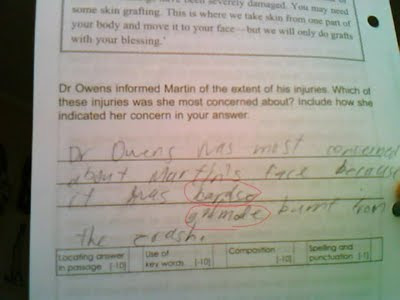 have been severely damaged. You may need
some skin grafting. This is where we take skin from one part of
your body and move it to your face – but we will only do grafts
with your blessing.'
Dr Owens informed Martin of the extent of his injuries. Which of
these injuries was she most concerned about? Include how she
indicated her concern in your answer.
Dr Owens was most concerned
about Martin's face because
it was
burnt from
the crash.
Locating answer
in passage [-10]
Use of
key words [-10]
Composition
[-10]
Spelling and
punctuation [-1]